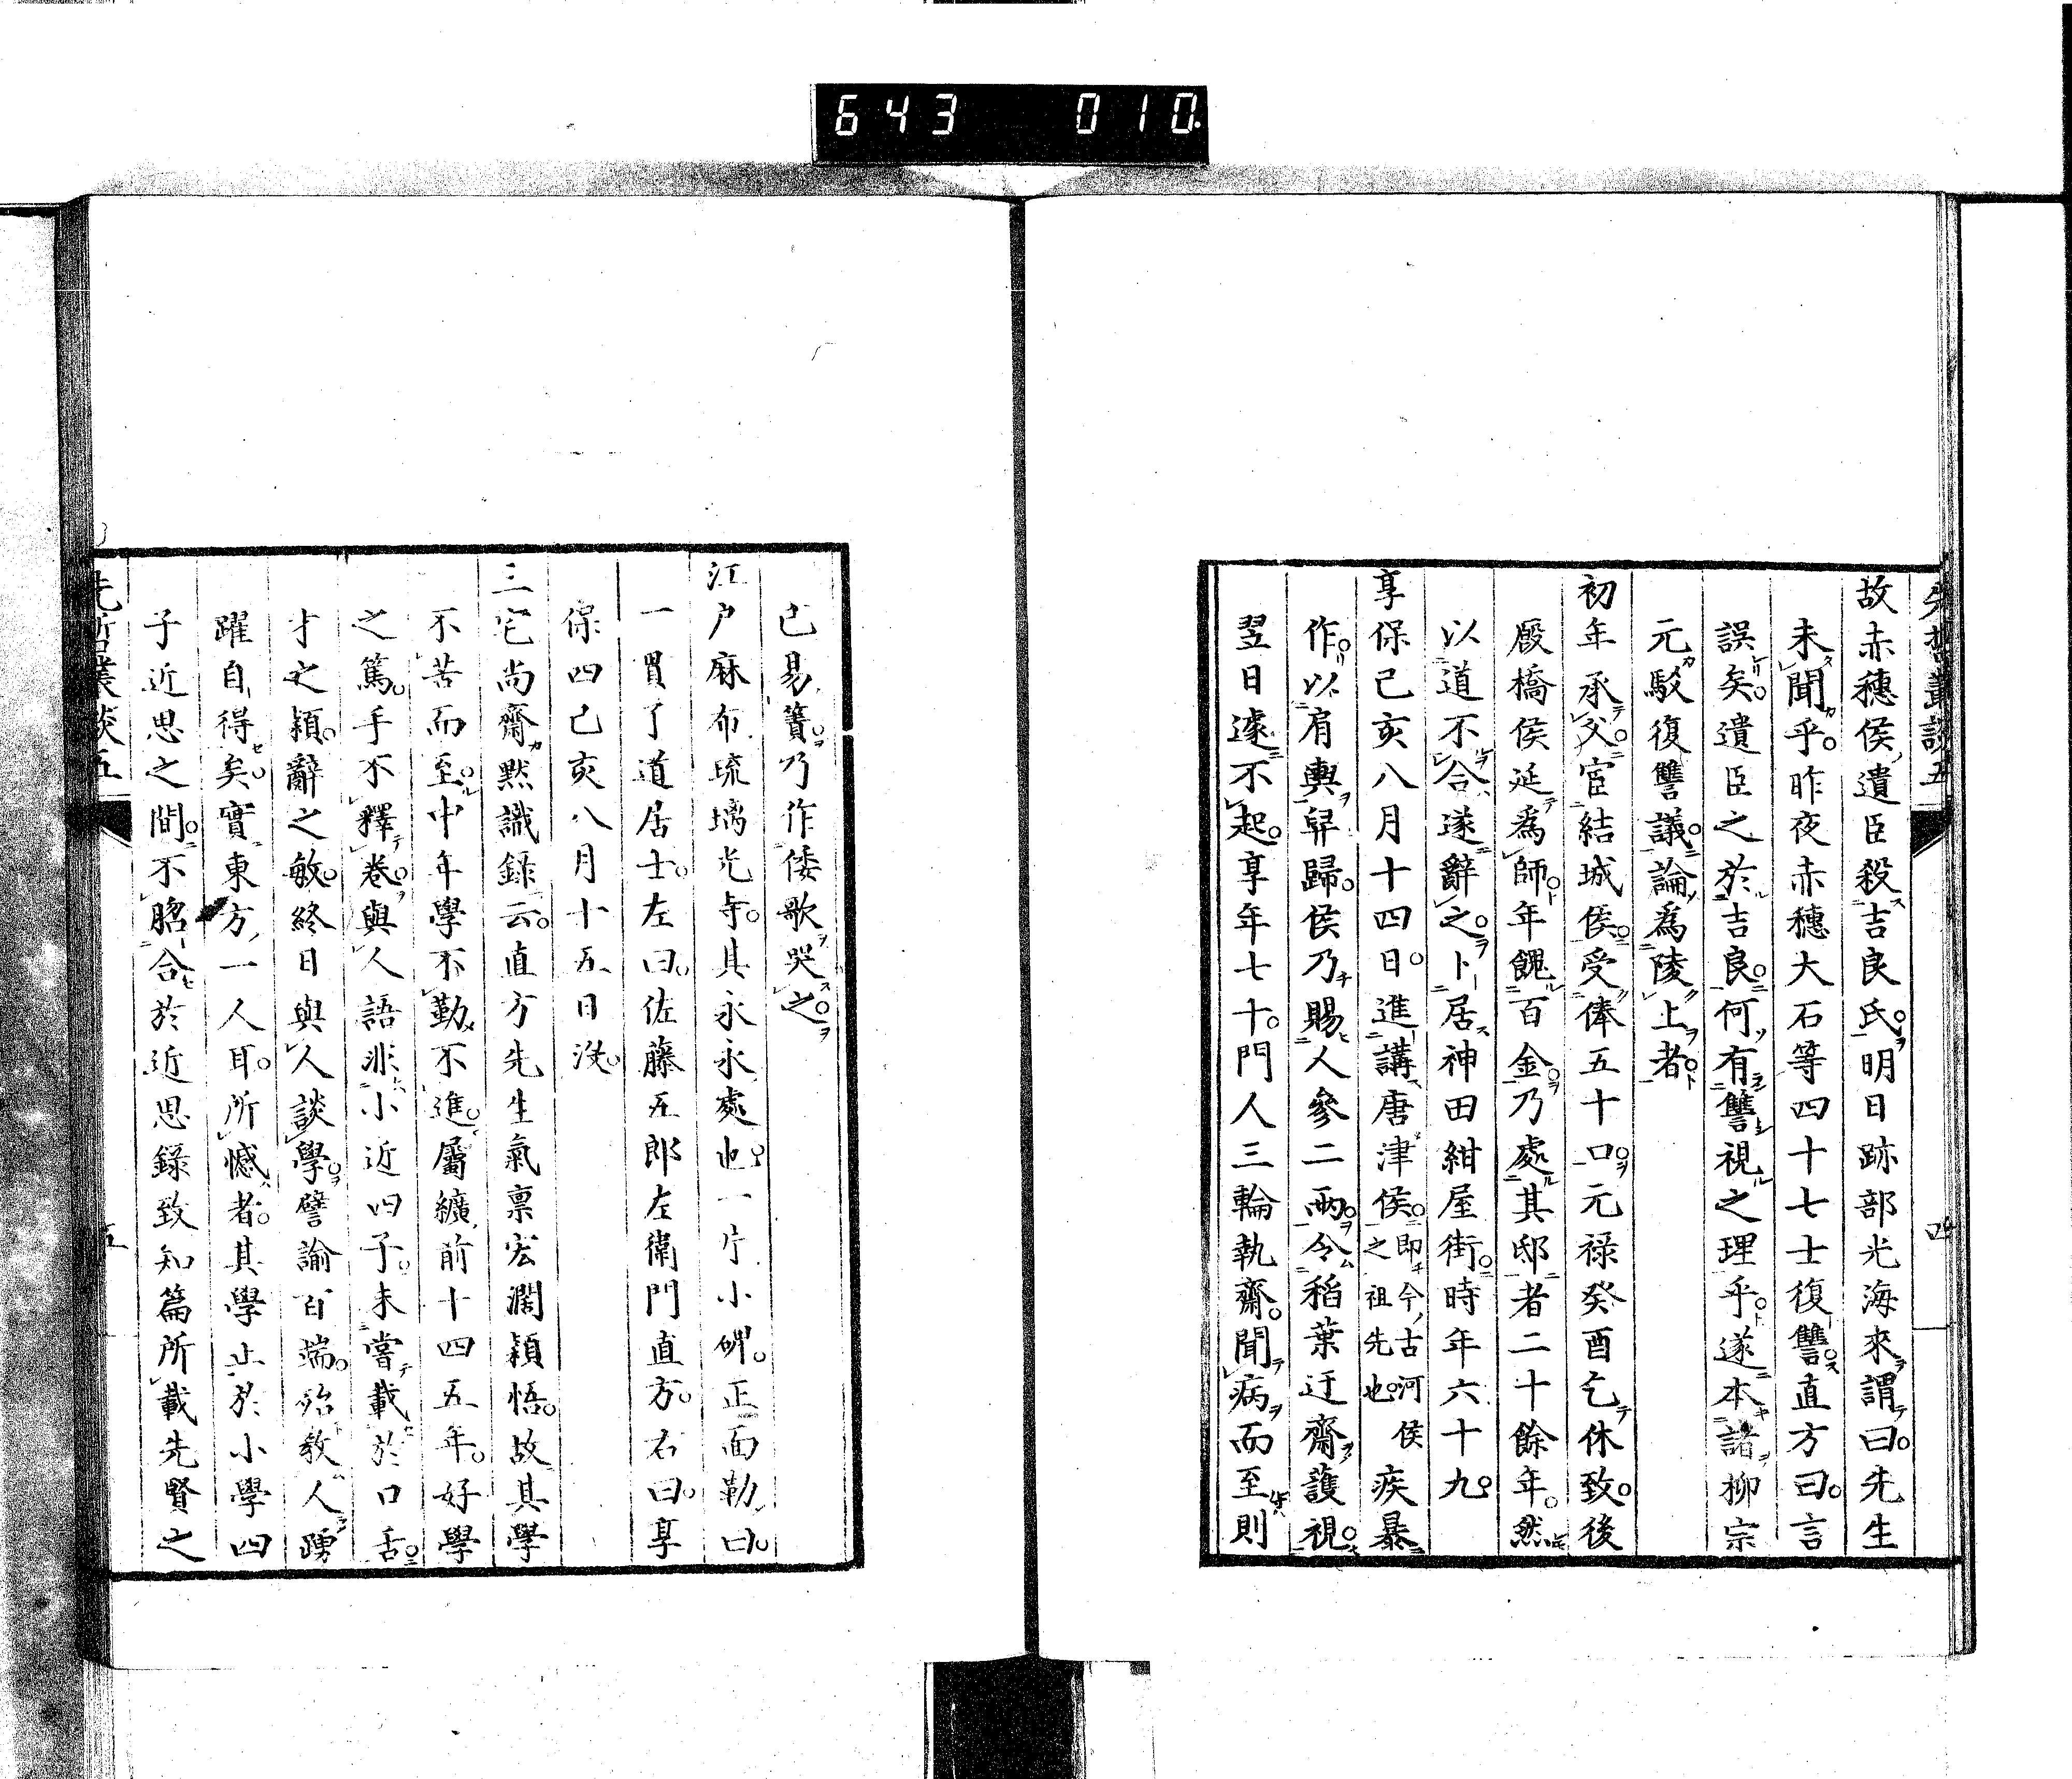 643 010
先哲叢談五 四
故赤穗侯遺臣殺吉良氏明日跡部光海來謂曰先生
未聞乎昨夜赤穗大石等四十七士復讐直方曰言
誤矣遺臣之於吉良何有讐視之理乎遂本諸柳宗
元駁復讐議論爲陵上者
初年承父宦結城侯受俸五十口元祿癸酉乞休致後
廐橋侯延爲師年餽百金乃處其邸者二十餘年然
以道不合遂辭之卜居神田紺屋街時年六十九
享保己亥八月十四日進講唐津侯即今古河侯之祖先也疾暴
作以肩輿舁歸侯乃賜人參二兩令稻葉迂齋護視
翌日遽不起享年七十門人三輪執齋聞病而至則
已易簀乃作倭歌哭之
江戶麻布琉璃光寺其永永處也一片小碑正面勒曰
一貫了道居士左曰佐藤五郎左衛門直方右曰享
保四己亥八月十五日沒
三宅尚齋默識錄云直方先生氣稟宏濶穎悟故其學
不苦而至中年學不勤不進屬纊前十四五年好學
之篤手不釋卷與人語非小近四子未嘗載於口舌
才之穎辭之敏終日與人談學譬諭百端殆教人踴
躍自得矣實東方一人耳所憾者其學止於小學四
子近思之間不脗合於近思錄致知篇所載先賢之
先哲叢談五 五